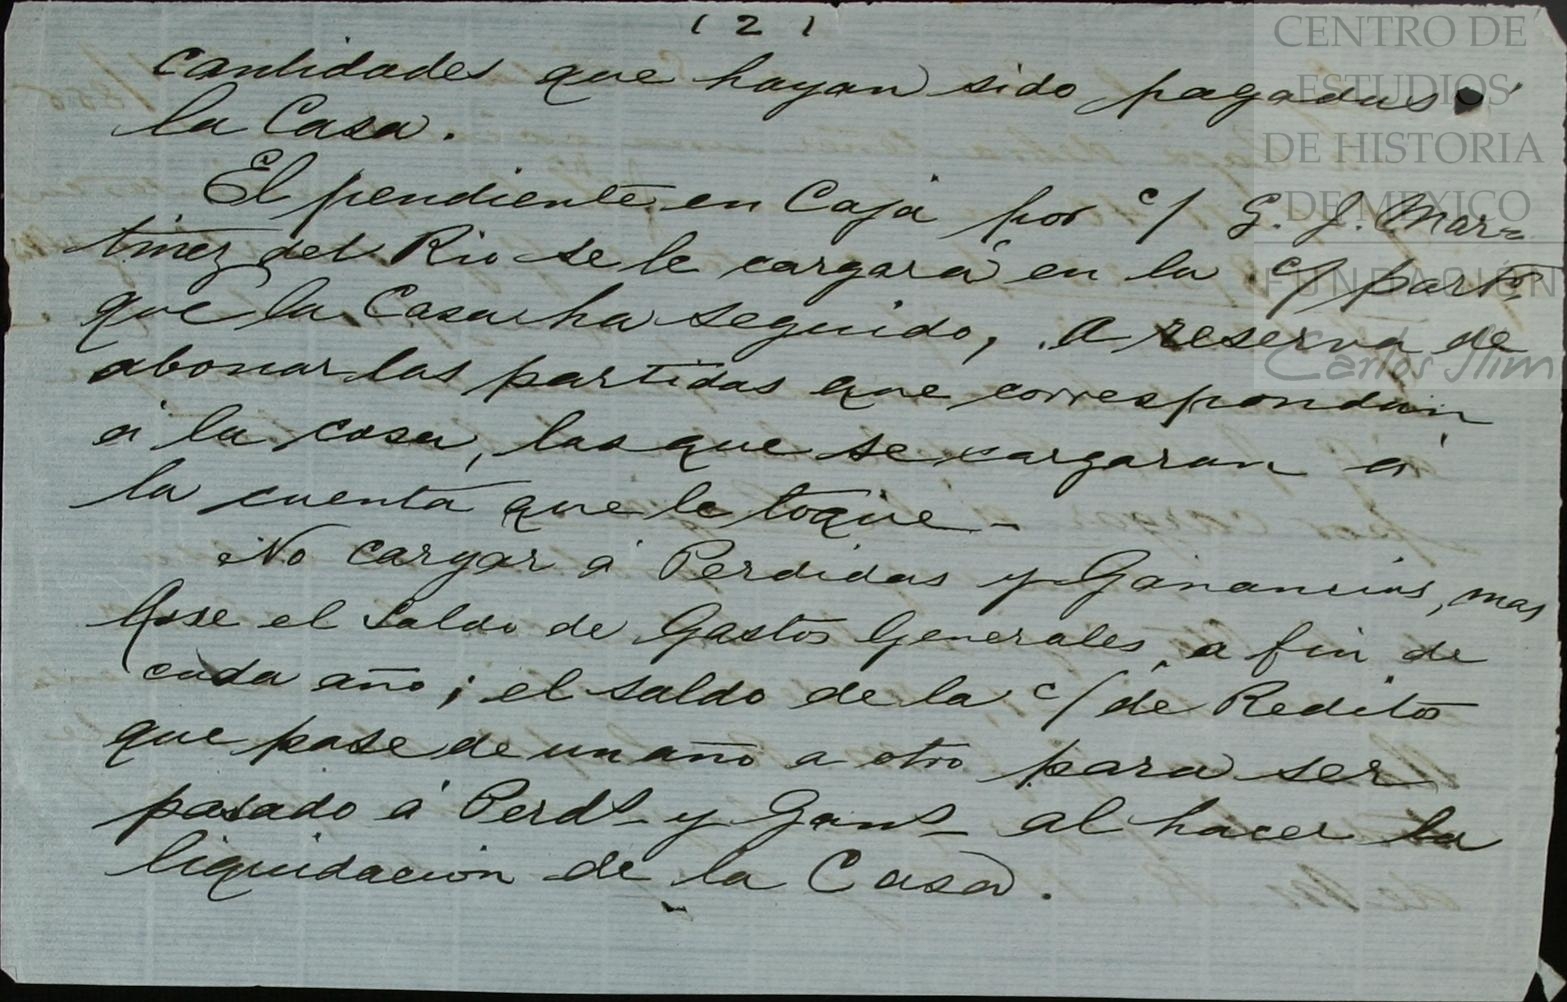 ( 2 )
cantidades que hayan sido pagadas
la Casa.
El pendiente en Caja por c/ G. J. Mar=
tinez del Rio se le cargará en la c/ part.
que la Casa ha seguido, a reserva de
abonar las partidas que correspondan
á la casa, las que se cargaran á
la cuenta que le toque -
No cargar á Perdidas y Ganancias, mas
que el Saldo de Gastos Generales, a fin de
cada año; el saldo de la c/ de Reditos
que pase de un año a otro para ser
pasado á Perds y Gans al hacer la
liquidacion de la Casa.
CENTRO DE
ESTUDIOS
DE HISTORIA
DE MEXICO
FUNDACIÓN
Carlos Slim